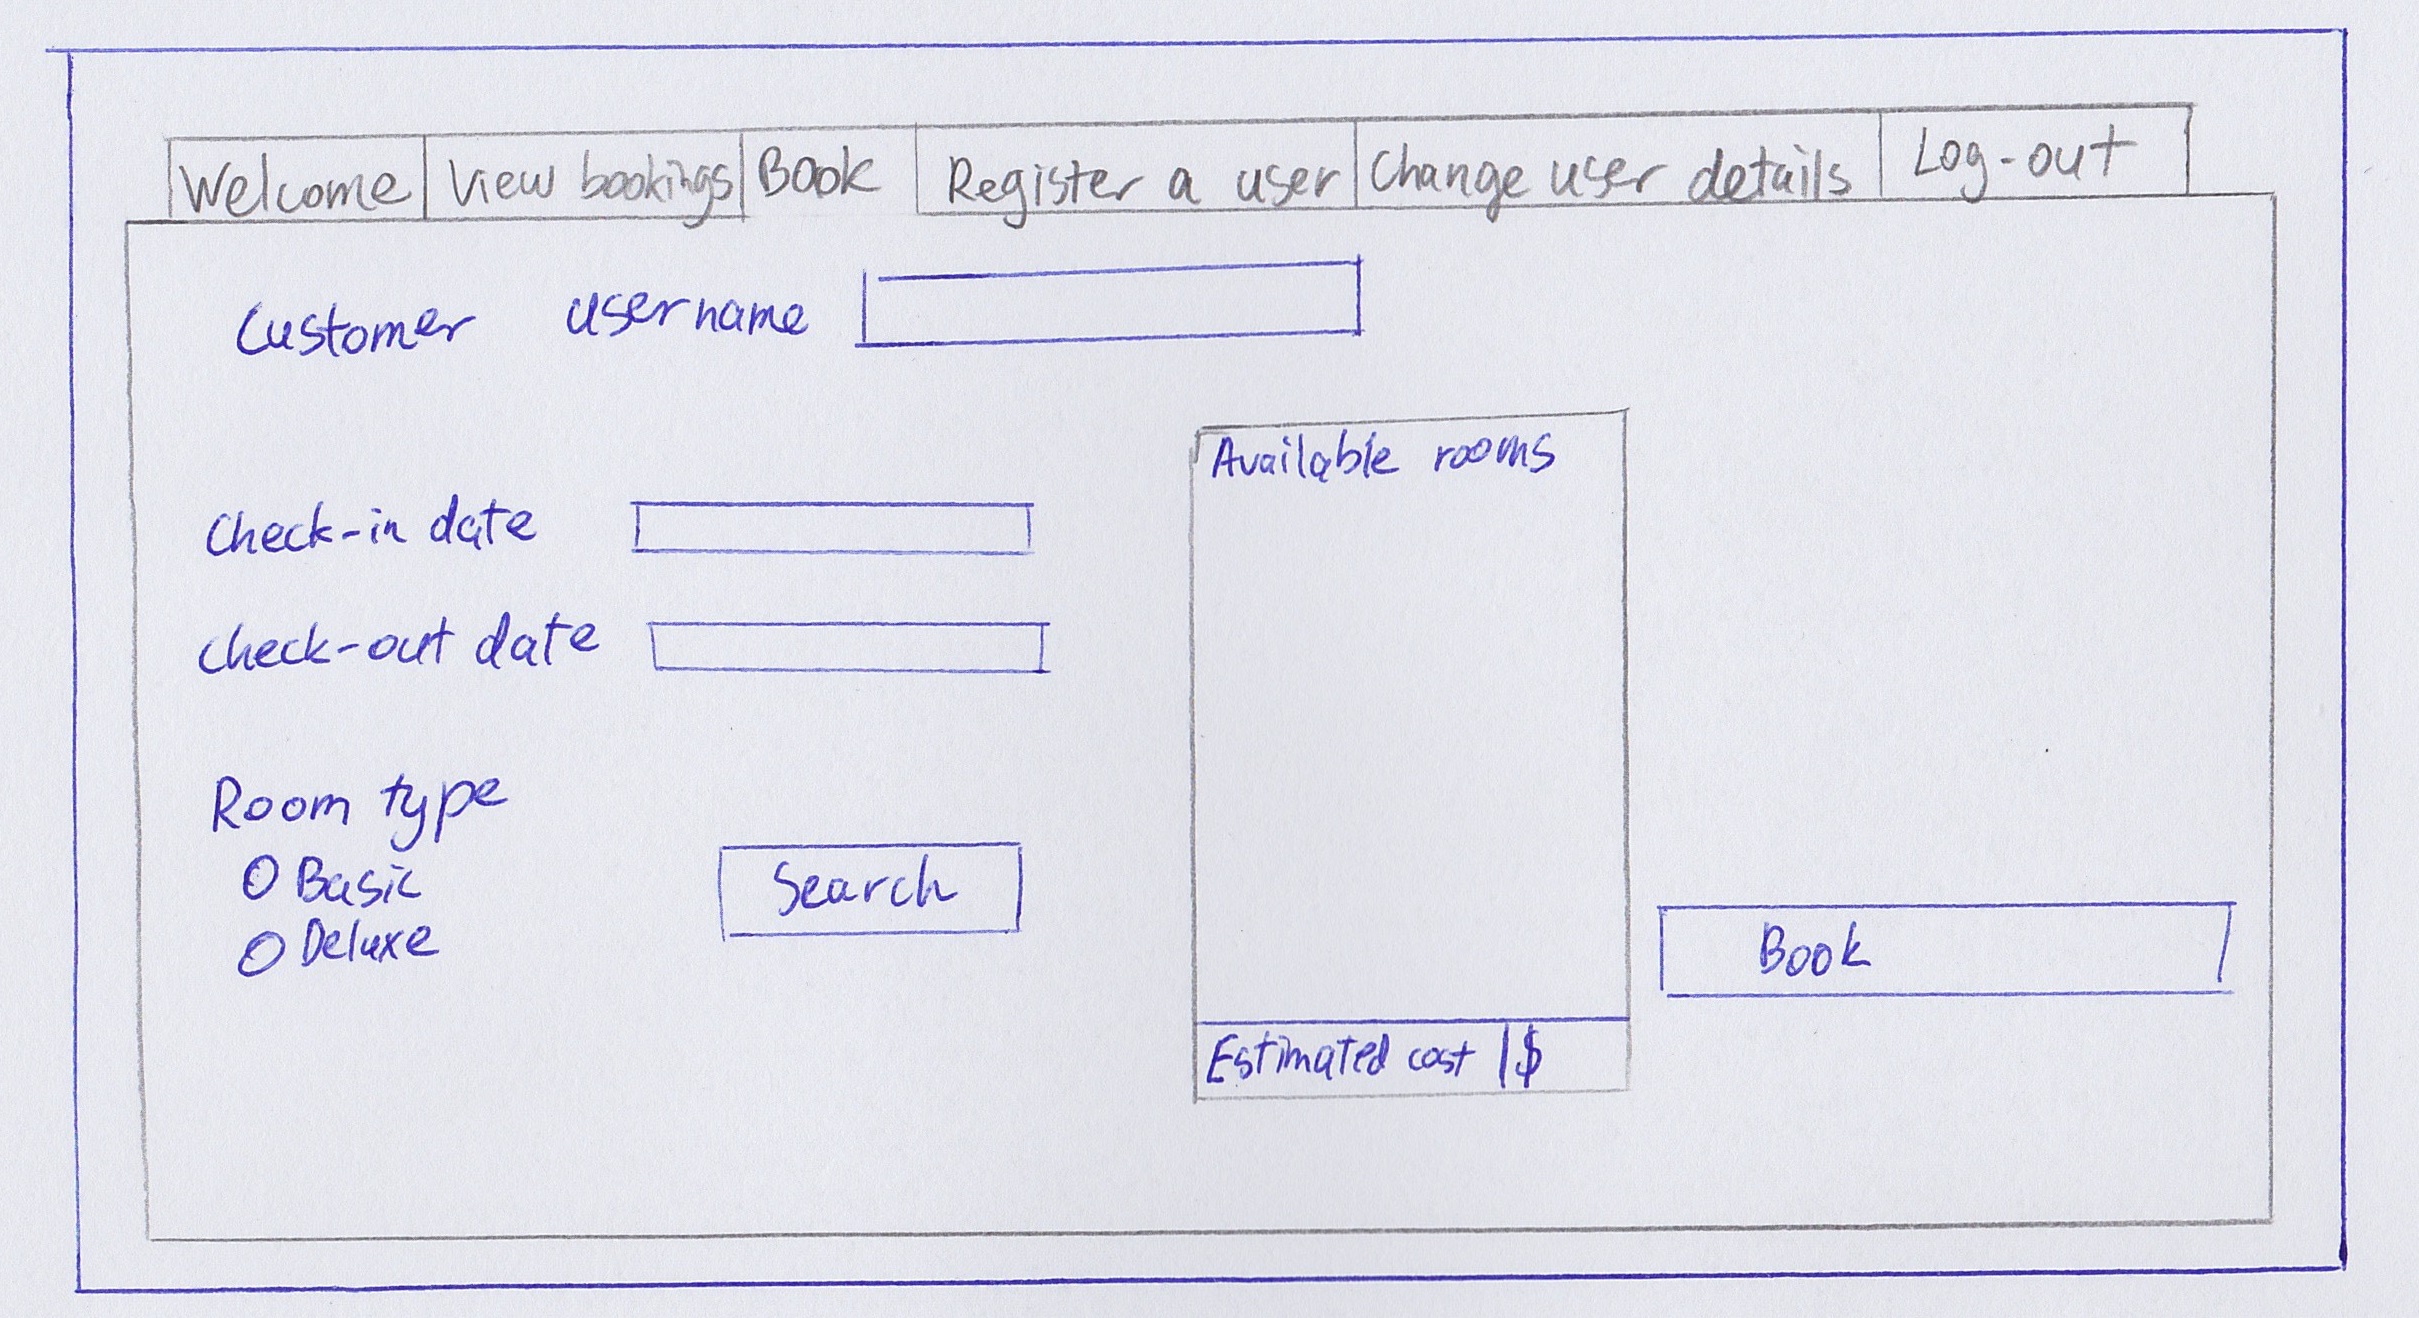 Welcome View bookings Book Register a user Change user details Log-out
Customer username
Available rooms
Check-in date
check-out date
Room type
Basic
Deluxe
Search
Book
Estimated cost | $